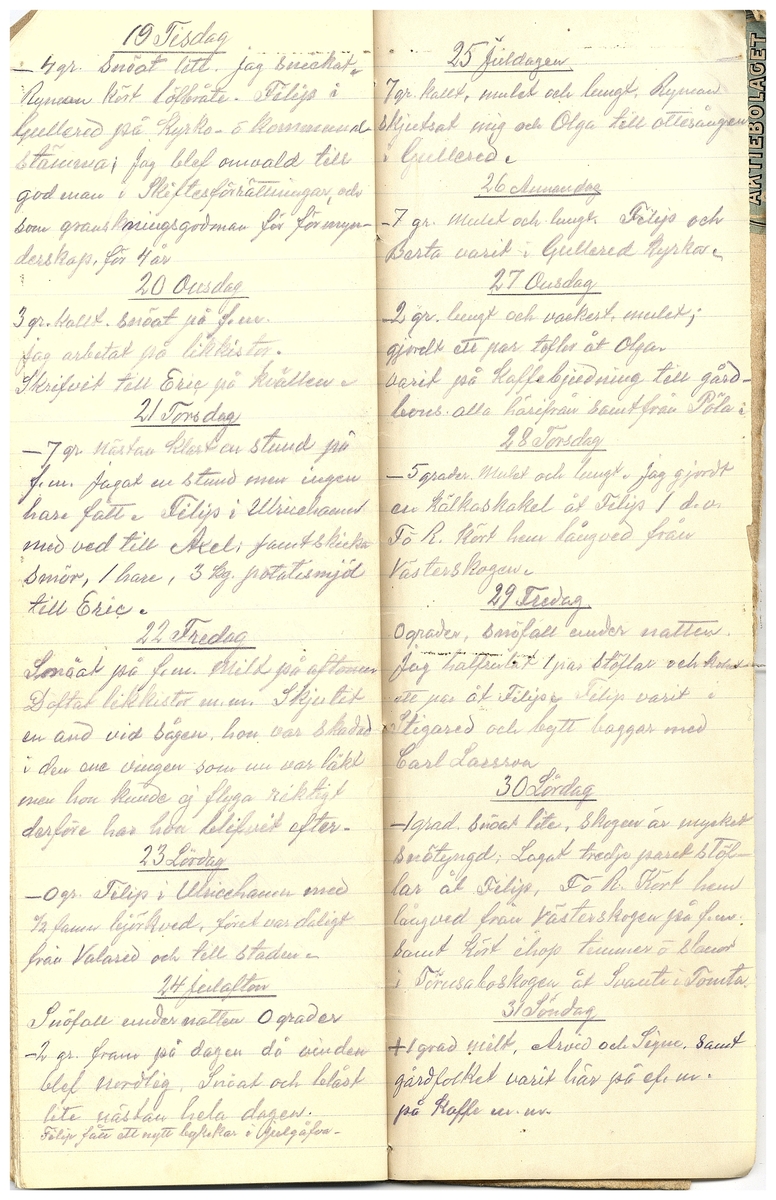 19 Tisdag
- 4 gr. snöat litt. jag snickat.
Ryman kört löfbråte. Filip i
Gullered på Kyrko- ö kommunal-
stämma; jag blef omvald till
godman i Skiftesförrättningar, och
som granskningsgodman för förmyn-
derskap, för 4 år
20 Onsdag
3 gr. kallt. snöat på f.m.
jag arbetat på likkistor.
Skrifvit till Eric på kvällen.
21 Torsdag
- 7 gr. nästan klart en stund på
f.m. jagat en stund men ingen
hare fått. Filip i Ulricehamn
med ved till Axel; samt skicka
smör, 1 hare, 3 kg. potatismjöl
till Eric.
22 Fredag
Snöat på f.m. Milt på aftonen
Doftat likkistor m.m. Skjutit
en and vid sågen, hon var skadad
i den ene vingen som nu var läkt
men hon kunde ej flyga riktigt
derföre har hon blifvit efter.
23 Lördag
- 0 gr. Filip i Ulricehamn med
½ famn björkved, föret var dåligt
från Valared och till staden.
24 julafton
Snöfall under natten 0 grader
- 2 gr. fram på dagen då vinden
blef nordlig. Snöat och blåst
lite nästan hela dagen.
Filip fått ett nytt bykskar i Julgåfva.
25 Juldagen
7 gr. kallt, mulet och lungt. Ryman
skjutsat mig och Olga till ottesången
i Gullered.
26 Annandag
- 7 gr. mulet och lungt. Filip och
Berta varit i Gullered Kyrkor.
27 Onsdag
- 2 gr. lungt och vackert. mulet;
gjordt ett par tofflor åt Olga.
varit på Kaffebjudning till gård-
bons. alla härifrån samt från Pöla i
28 Torsdag
- 5 grader. Mulet och lungt. Jag gjordt
en kälkaskakel åt Filip 1 d.v.
F ö R. Kört hem långved från
Västerskogen.
29 Fredag
0 grader, snöfall under natten.
Jag halfsulat 1 par stöflar och
ett par åt Filip. Filip varit i
Stigared och bytt baggar med
Carl Larsson
30 Lördag
- 1 grad. snöat lite, skogen är mycket
snötyngd; Lagat tredje paret stöf-
lar åt Filip, F ö R. Kört hem
långved från Västerskogen på f.m.
samt kört ihop timmer ö slanor
i Törnaboskogen åt Svante i Tomta.
31 Söndag
+ 1 grad milt, Arvid och Signe. samt
gårdfolket varit här på ef.m.
på Kaffe m.m.
AKTIEBOLAGET